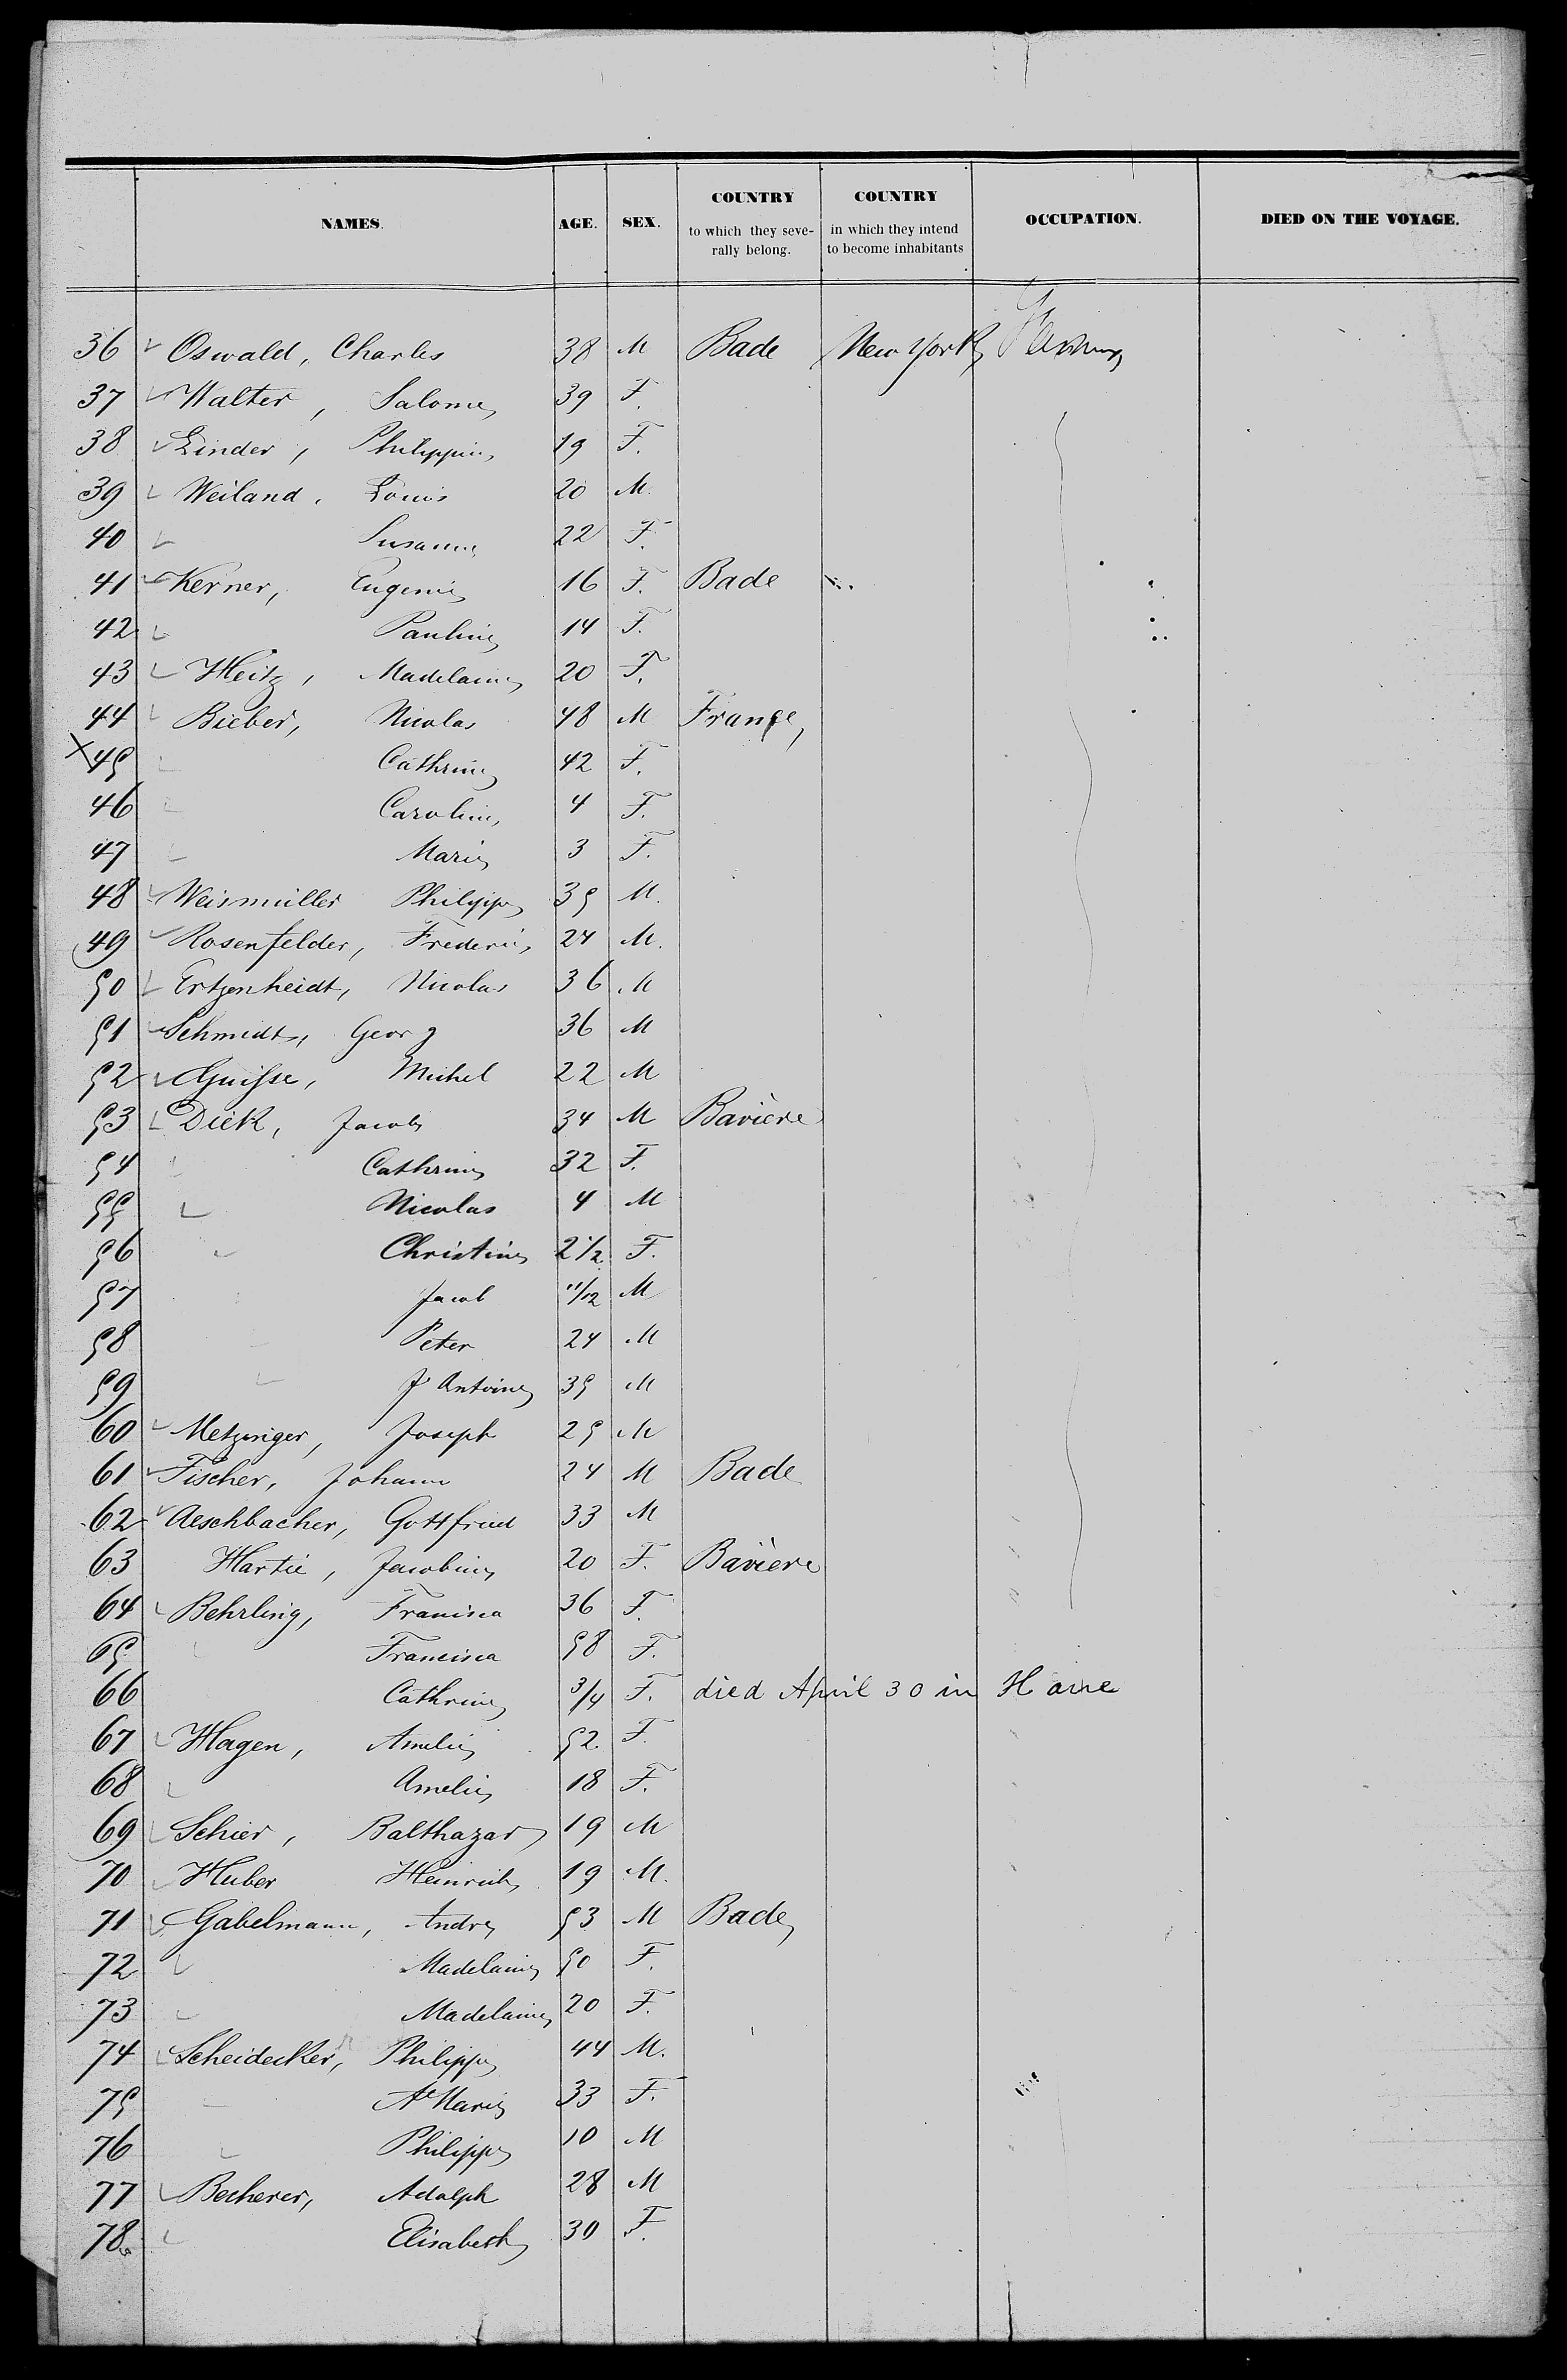 NAMES. AGE. SEX. COUNTRY to which they seve- rally belong. COUNTRY in which they intend to become inhabitants OCCUPATION. DIED ON THE VOYAGE.
36 Oswald, Charles 38 M Bade New York
37 Walter, Salome 39 F.
38 Linder, Philippine 19 F.
39 Weiland, Louis 20 M.
40 Susanne 22 F.
41 Kerner, Eugenie 16 F. Bade
42 Pauline 14 F.
43 Heitz, Madelaine 20 F.
44 Bieber, Nicolas 48 M France
X 45 Cathrine 42 F.
46 Caroline 4 F.
47 Marie 3 F.
48 Weismüller Philippe 35 M.
49 Rosenfelder, Frederic 24 M.
50 Ertzenheidt, Nicolas 36 M
51 Schmidt, Georg 36 M
52 Guisse, Michel 22 M
53 Dick, Jacob 34 M Bavière
54 Cathrine 32 F.
55 Nicolas 4 M
56 Christine 2 1/2 F.
57 Jacob 11/12 M
58 Peter 24 M
59 J Antoine 35 M
60 Metzinger, Joseph 25 M
61 Fischer, Johann 24 M Bade
62 Aeschbacher, Gottfried 33 M
63 Hartie, Jacobine 20 F. Bavière
64 Behrling, Francisca 36 F.
65 Francisca 58 F.
66 Cathrine 3/4 F. died April 30 in Havre
67 Hagen, Amelie 52 F.
68 Amelie 18 F.
69 Schier, Balthazar 19 M
70 Huber Heinrich 19 M.
71 Gabelmann, Andre 53 M Bade
72 Madelaine 50 F.
73 Madelaine 20 F.
74 Scheidecker, Philippe 44 M.
75 A Marie 33 F.
76 Philippe 10 M
77 Becherer, Adolph 28 M
78 Elisabeth 30 F.